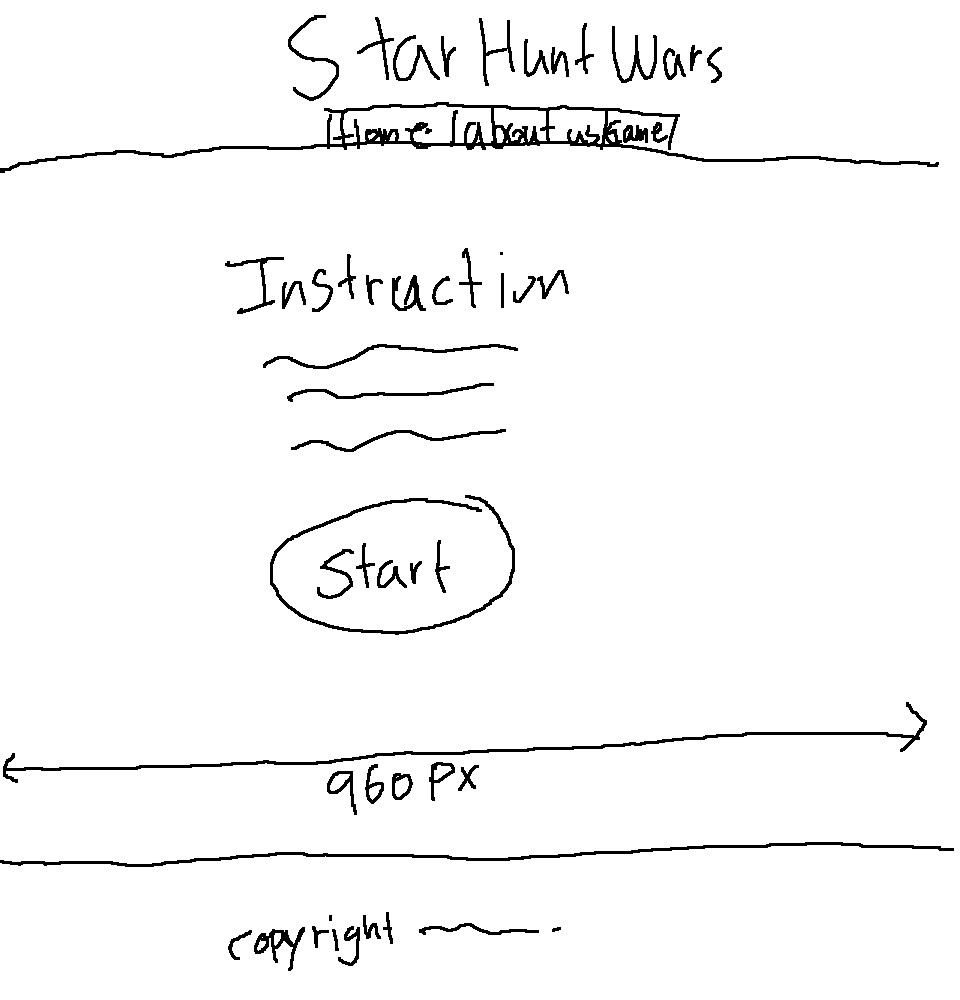 Star Hunt Wars
Home about us Game
Instruction
Start
960 PX
copyright